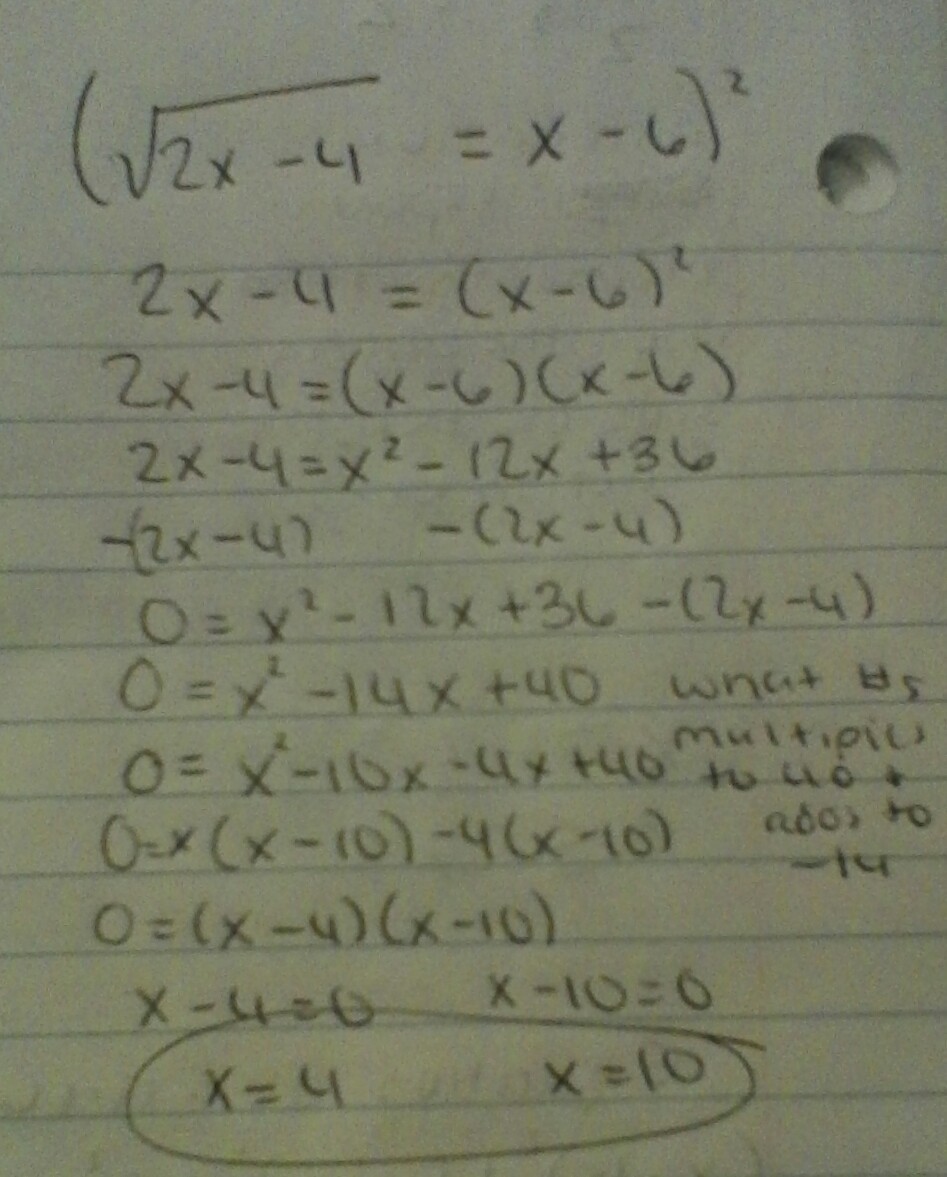 (√2x-4 = x-6)²
2x-4 = (x-6)²
2x-4=(x-6)(x-6)
2x-4=x²-12x+36
-(2x-4) -(2x-4)
0=x²-12x+36-(2x-4)
0=x²-14x+40 what #s
multiplies
0=x²-10x-4x+40 to 40 +
adds to
0=x(x-10)-4(x-10)
-14
0=(x-4)(x-10)
x-4=0 x-10=0
x=4 x=10